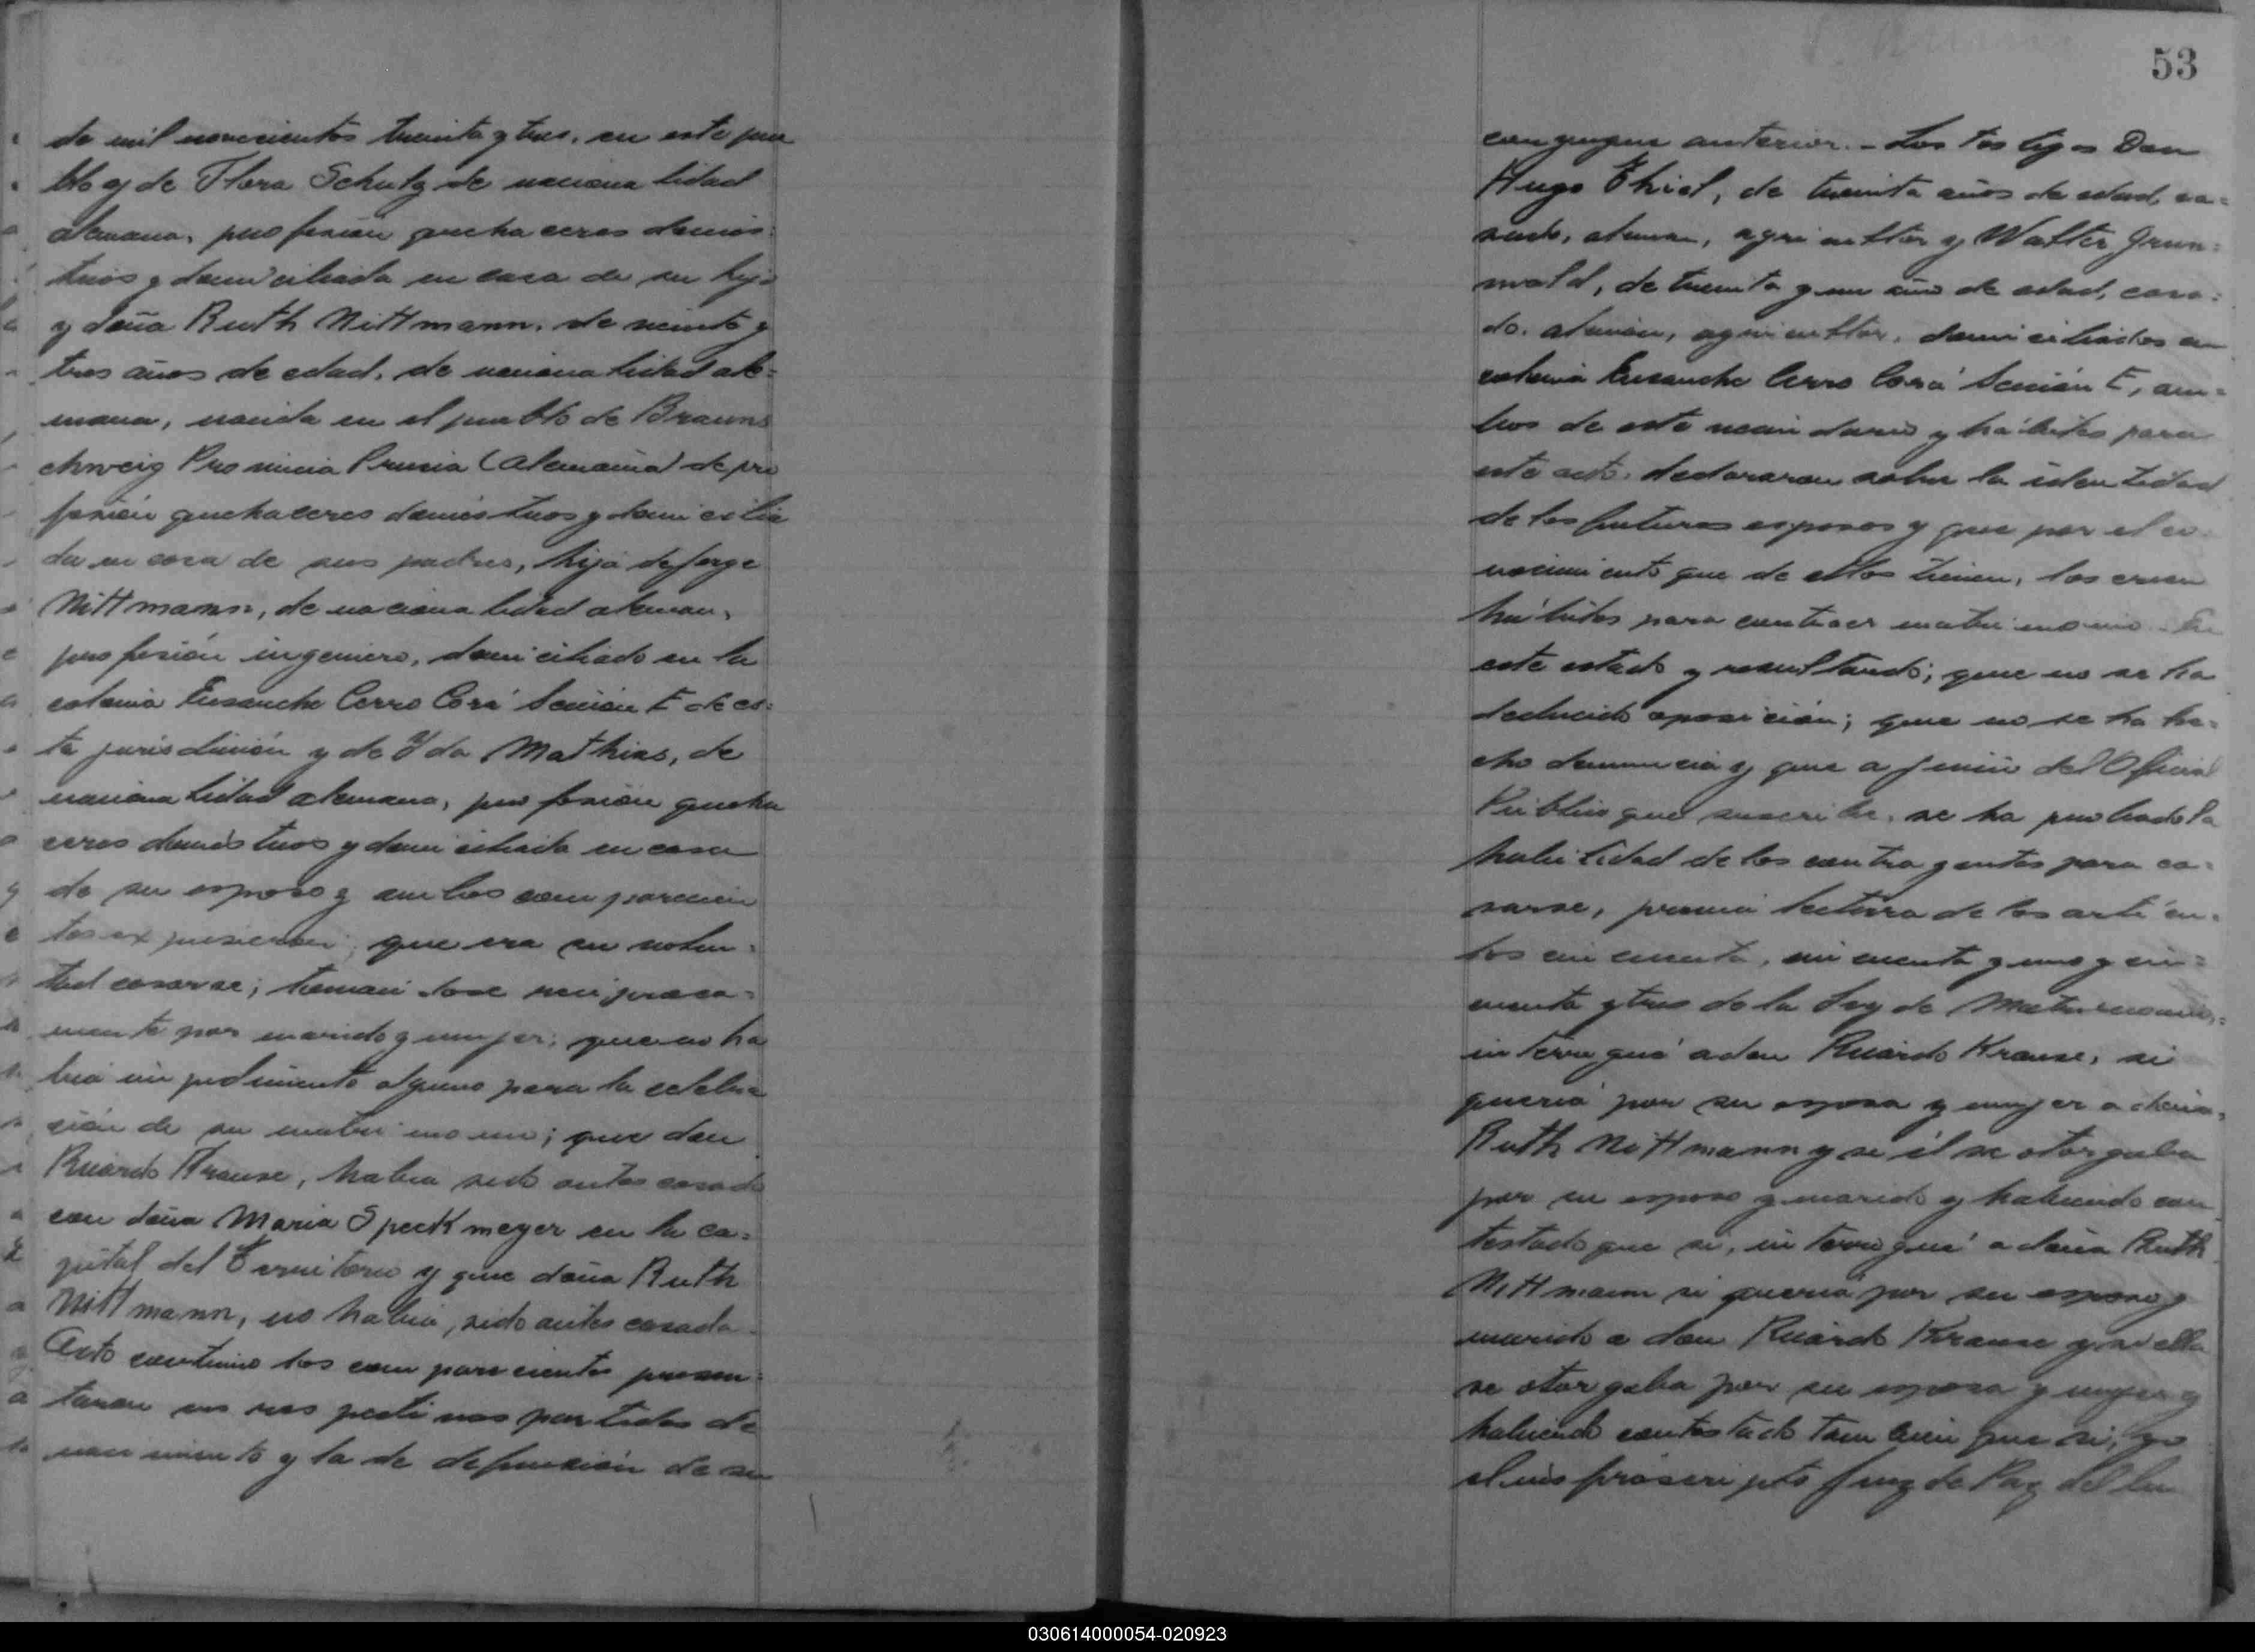 de mil novecientos treinta y tres, en este pue
blo y de Flora Schulz de nacionalidad
alemana, profesión quehaceres domés=
ticos y domiciliada en casa de su hijo
y doña Ruth Nittmann, de veinte y
tres años de edad, de nacionalidad ale=
mana, nacida en el pueblo de Brauns
chweig Provincia Prusia (Alemania) de pro
fesión quehaceres domésticos y domicilia
da en casa de sus padres, hija de Jorge
Nittmann, de nacionalidad aleman,
profesión ingeniero, domiciliado en la
colonia Ensanche Cerro Corá Sección E de es=
ta jurisdicción y de Yda Mathias, de
nacionalidad alemana, profesión queha
ceres domésticos y domiciliada en casa
de su esposo y ambos comparecien
tes expusieron; que era su volun=
tad casarse; tomandose reciproca=
mente por marido y mujer; que no ha
bia impedimento alguno para la celebra
ción de su matrimonio; que don
Ricardo Krause, habia sido antes casado
con doña Maria Speckmeyer en la ca=
pital del Territorio y que doña Ruth
Nittmann, no habia, sido antes casada.
Acto continuo los comparecientes presen=
taron sus respectivas partidas de
nacimiento y la de defunción de su
53
conyugue anterior.- Los testigos Don
Hugo Thiel, de treinta años de edad, ca=
sado, aleman, agricultor y Walter Grun=
wald, de treinta y un año de edad, casa=
do, alemán, agricultor, domiciliados en
colonia Ensanche Cerro Corá Sección E, am=
bos de este vecindario y hábiles para
este acto, declararon sobre la identidad
de los futuros esposos y que por el co
nocimiento que de ellos tienen, los creen
hábiles para contraer matrimonio. En
este estado y resultando; que no se ha
deducido oposición; que no se ha he=
cho denuncia y que a juicio del Oficial
Público que suscribe, se ha probado la
habilidad de los contrayentes para ca=
sarse, previa lectura de los artícu=
los cincuenta, cincuenta y uno y cin=
cuenta y tres de la Ley de Matrimonio,=
interrogué a don Ricardo Krause, si
queria por su esposa y mujer a doña
Ruth Nittmann y si él se otorgaba
por su esposo y marido y habiendo con
testado que si, interrogué a doña Ruth
Nittmann si queria por su esposo y
marido a don Ricardo Krause y si ella
se otorgaba por su esposa y mujer y
habiendo contestado tambien que si, yo
el infrascripto Juez de Paz del lu
030614000054-020923